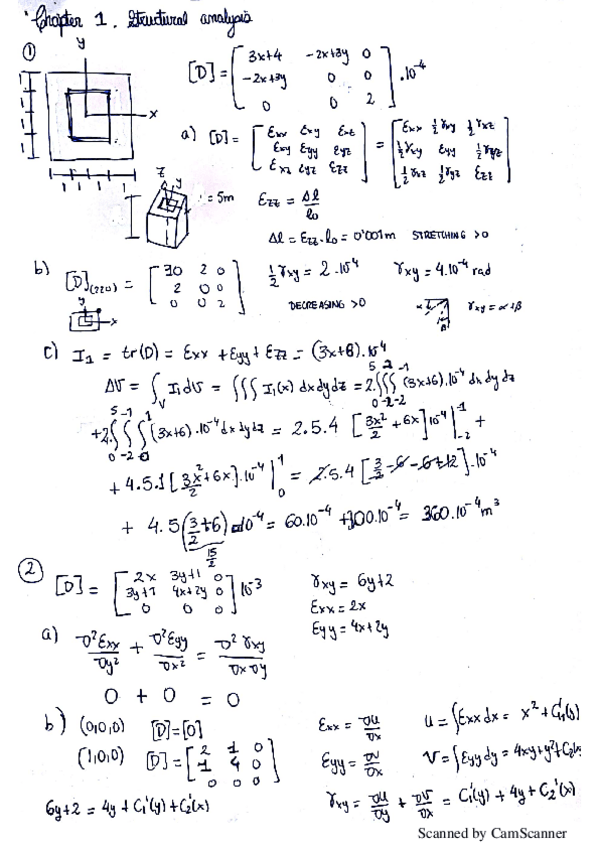 Chapter 1. Structural analysis
①
y
x
[D] = [ 3x+4 -2x+3y 0
-2x+3y 0 0
0 0 2 ] .10⁻⁴
a) [D] = [ Exx Exy Exz
Exy Eyy Eyz
Exz Eyz Ezz ] = [ Exx ½γxy ½γxz
½γxy Eyy ½γyz
½γxz ½γyz Ezz ]
z y
= 5m Ezz = Δl/l₀
Δl = Ezz . l₀ = 0'001m STRETCHING >0
b) [D](220) = [ 30 2 0
2 0 0
0 0 2 ]
½γxy = 2.10⁻⁴ γxy = 4.10⁻⁴ rad
DECREASING >0
γxy = α+β
y
x
c) I₁ = tr(D) = Exx + Eyy + Ezz = (3x+6).10⁻⁴
ΔV = ∫v I₁dV = ∫∫∫ I₁(x) dxdydz = 2.∫₀⁵∫₋₂²∫₋₂⁻¹ (3x+6).10⁻⁴ dx dy dz
+2.∫₀⁵∫₋₂⁻¹∫₀¹ (3x+6).10⁻⁴ dx dy dz = 2.5.4 [3x²/2 + 6x]10⁻⁴ |₋₂⁻¹ +
+ 4.5.1 [3x²/2 + 6x].10⁻⁴ |₀¹ = 2.5.4 [3/2 - 6 - 6 + 12].10⁻⁴
+ 4.5(3/2+6).10⁻⁴ = 60.10⁻⁴ + 300.10⁻⁴ = 360.10⁻⁴ m³
15/2
②
[D] = [ 2x 3y+1 0
3y+1 4x+2y 0
0 0 0 ] 10⁻³
γxy = 6y+2
Exx = 2x
Eyy = 4x+2y
a) ∂²Exx/∂y² + ∂²Eyy/∂x² = ∂²γxy/∂x∂y
0 + 0 = 0
b) (0,0,0) [D]=[0]
(1,0,0) [D]= [ 2 1 0
1 4 0
0 0 0 ]
Exx = ∂u/∂x u = ∫Exx dx = x² + C₁(y)
Eyy = ∂v/∂x v = ∫Eyy dy = 4xy+y²+C₂(x
6y+2 = 4y + C₁'(y) + C₂'(x)
γxy = ∂u/∂y + ∂v/∂x = C₁'(y) + 4y + C₂'(x)
Scanned by CamScanner